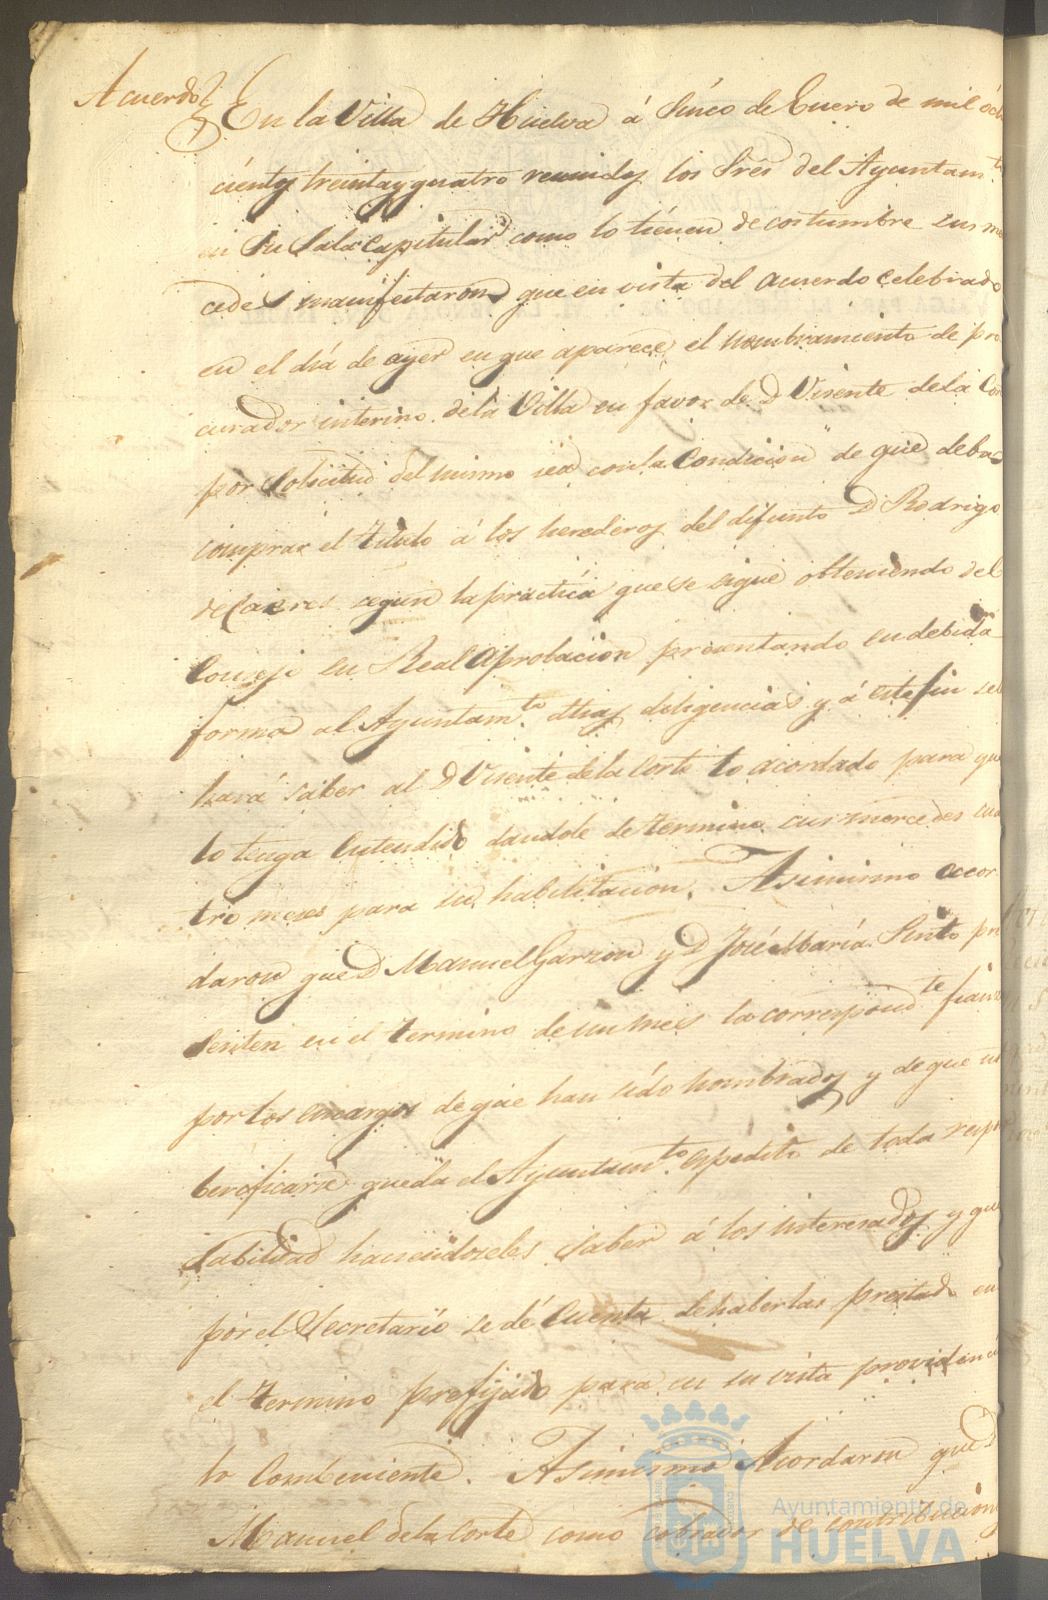 Acuerdo En la Villa de Huelva á Sinco de Enero de mil ócho
cientos treinta y quatro reunidos los Sres del Ayuntam.to
en su Sala Capitular como lo tienen de costumbre sus mer
cedes manifestaron que en vista del acuerdo celebrado
en el día de ayer en que aparece el nombramiento de pro
curador interino de la Villa en favor de D Visente de la Cor
por solicitud del mismo sea con la Condicion de que deba
comprar el titulo á los herederos del difunto D Rodrigo
de Caires segun la práctica que se sigue obteniendo del
Consejo su Real Aprobacion presentando en debida
forma al Ayuntam.to dhas diligencias y á este fin se
hará saber al D Visente de la Corte lo acordado para que
lo tenga entendido dandole de termino sus mercedes cua
tro meses para su habilitacion. Asimismo acor
daron que D Manuel Garzon y D José Maria Pinto pre
senten en el termino de un mes la correspond.te fianza
por los encargos de que han sido nombrados y de que no
berificarse queda el Ayuntam.to espedito de toda respon
sabilidad haciendoseles saber á los interesados y que
por el Secretario se dé Cuenta de haberlas prestado en
el termino prefijado para en su vista providenciar
lo Combeniente. Asimismo Acordaron que D
Manuel de la Corte como cobrador de contribucion
Ayuntamiento de
HUELVA